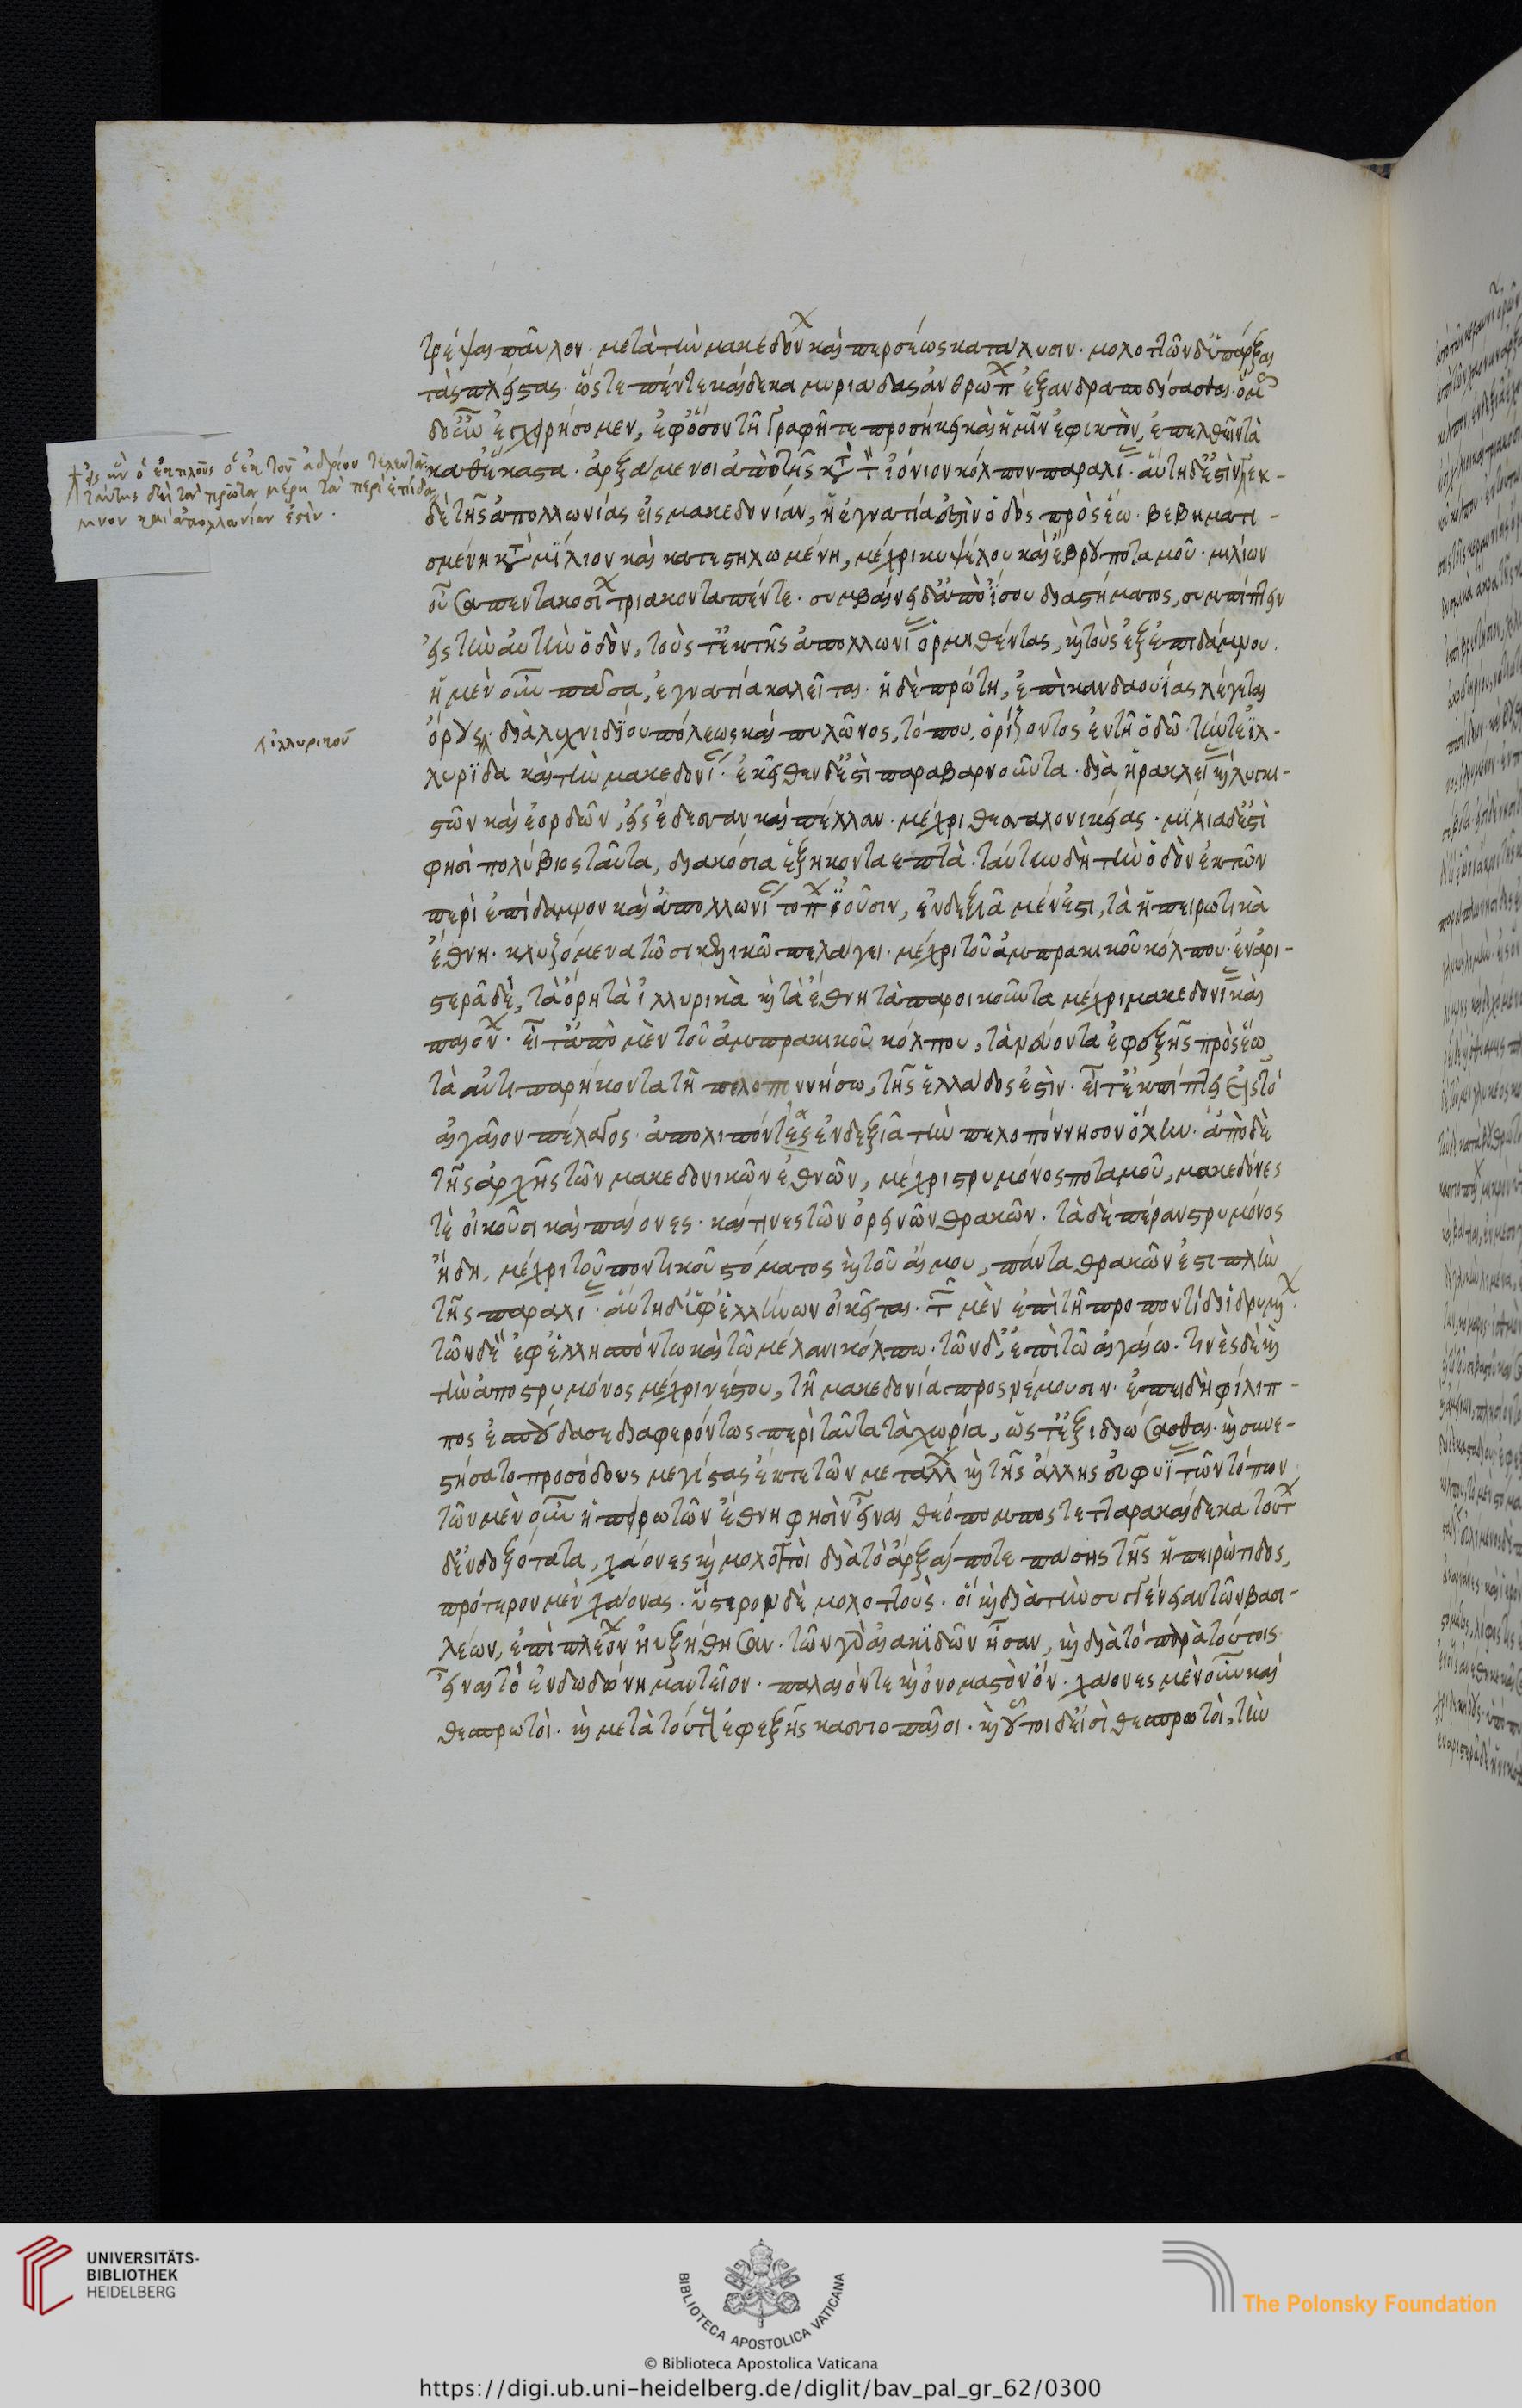 τρέψαι παῦλον· μετὰ τὴν μακεδόνων καὶ περσέως κατάλυσιν· μολοττῶν δ' ὑπάρξαι
τὰς πλείστας· ὥστε πέντε καὶ δεκα μυριάδας ἀνθρώπων ἐξανδραποδίσασθαι· ὅμως
δ' οὖν ἐγχειρήσομεν, ἐφ' ὅσον τῆ γραφῆ τε προσήκει καὶ ἡμῖν ἐφικτὸν, ἐπελθεῖν τὰ
καθ' ἕκαστα· ἀρξάμενοι ἀπὸ τῆς κατὰ τὸν ἰόνιον κόλπον παραλίας· αὕτη δ' ἐστὶν ἐκ-
δὲ τῆς ἀπολλωνίας εἰς μακεδονίαν, ἡ ἐγνατία ἐστὶν ὁδὸς πρὸς ἕω· βεβηματι-
σμένη κατὰ μίλιον καὶ κατεστηλωμένη, μέχρι κυψέλου καὶ ἕβρου ποταμοῦ· μιλίων
δ' ἐστὶ πεντακοσίων τριάκοντα πέντε· συμβαίνει δ' ἀπὸ ἴσου διαστήματος, συμπίπτειν
εἰς τὴν αὐτὴν ὁδὸν, τούς τ' ἐκ τῆς ἀπολλωνίας ὁρμηθέντας, καὶ τοὺς ἐξ ἐπιδάμνου.
ἡ μὲν οὖν πᾶσα, ἐγνατία καλεῖται· ἡ δὲ πρώτη, ἐπὶ κανδαουίας λέγεται
ὄρους· διὰ λιχνιδίου πόλεως καὶ πυλῶνος, τόπου ὁρίζοντος ἐν τῆ ὁδῶ· τήν τε ἰλ-
λυρίδα καὶ τὴν μακεδονίαν· ἐκεῖθεν δ' ἐστὶ παρὰ βαρνοῦντα· διὰ ἡρακλείας καὶ λυγκη-
στῶν καὶ ἐορδῶν, εἰς ἔδεσσαν καὶ πέλλαν· μέχρι θεσσαλονικείας· μίλια δ' ἐστὶ
φησὶ πολύβιος ταῦτα, διακόσια ἑξήκοντα επτὰ· ταύτην δὴ τὴν ὁδὸν ἐκ τῶν
περὶ ἐπίδαμνον καὶ ἀπολλωνίαν τόπων ἰοῦσιν, ἐν δεξιᾶ μέν ἐστι, τὰ ἠπειρωτικὰ
ἔθνη· κλυζόμενα τῶ σικελικῶ πελάγει· μέχρι τοῦ ἀμπρακικοῦ κόλπου· ἐν ἀρι-
στερᾶ δὲ, τὰ ὄρη τὰ ἰλλυρικὰ καὶ τὰ ἔθνη τὰ παροικοῦντα μέχρι μακεδονίας καὶ
παιόνων· εἶτ' ἀπὸ μὲν τοῦ ἀμπρακικοῦ κόλπου, τὰ νεύοντα ἐφεξῆς πρὸς ἕω
τὰ ἀντιπαρήκοντα τῆ πελοποννήσω, τῆς ἑλλάδος ἐστίν· εἶτ' ἐκπίπτει εἰς τὸ
αἰγαῖον πέλαγος· ἀπολιπόντα ἐν δεξιᾶ τὴν πελοπόννησον ὅλην· ἀπὸ δὲ
τῆς ἀρχῆς τῶν μακεδονικῶν ἐθνῶν, μέχρι στρυμόνος ποταμοῦ, μακεδόνες
τὲ οἰκοῦσι καὶ παίονες· καί τινες τῶν ὀρεινῶν θρακῶν· τὰ δὲ πέραν στρυμόνος
ἤδη, μέχρι τοῦ ποντικοῦ στόματος καὶ τοῦ αἵμου, πάντα θρακῶν ἐστι πλὴν
τῆς παραλίας· αὕτη δ' ὑφ' ἑλλήνων οἰκεῖται· τῶν μὲν ἐπὶ τῆ προποντίδι ἱδρυμένων·
τῶν δὲ ἐφ' ἑλλησπόντω καὶ τῶ μέλανι κόλπω· τῶν δ' ἐπὶ τῶ αἰγαίω· τινὲς δὲ καὶ
τὴν ἀπὸ στρυμόνος μέχρι νέστου, τῆ μακεδονία προσνέμουσιν· ἐπειδὴ φίλιπ-
πος ἐσπούδασε διαφερόντως περὶ ταῦτα τὰ χωρία, ὥστ' ἐξιδιώσασθαι· καὶ συνε-
στήσατο προσόδους μεγίστας ἐκ τε τῶν μετάλλων καὶ τῆς ἄλλης εὐφυΐας τῶν τόπων
τῶν μὲν οὖν ἠπειρωτῶν ἔθνη φησὶν εἶναι θεόπομπος τετταρακαίδεκα· τούτων
δ' ἐνδοξότατα, χάονες καὶ μολοττοὶ διὰ τὸ ἄρξαί ποτε πάσης τῆς ἠπειρώτιδος,
πρότερον μὲν χάονας· ὕστερον δὲ μολοττούς· οἳ καὶ διὰ τὴν συγγένειαν τῶν βασι-
λέων, ἐπὶ πλέον ηὐξήθησαν· τῶν γὰρ αἰακιδῶν ἦσαν, καὶ διὰ τὸ παρὰ τούτοις
εἶναι τὸ ἐν δωδώνη μαντεῖον· παλαιόν τε καὶ ὀνομαστὸν ὄν· χάονες μὲν οὖν καὶ
θεσπρωτοὶ· καὶ μετὰ τούτους ἐφεξῆς κασσωπαῖοι· καὶ οὗτοι δ' εἰσὶ θεσπρωτοὶ, τὴν
εἰς ἣν ὁ ἔκπλους ὁ ἐκ τοῦ ἀδρίου τελευτᾶ
ταύτης δὲ τὰ πρῶτα μέρη τὰ περὶ ἐπίδα
μνον καὶ ἀπολλωνίαν ἐστὶν.
ἰλλυρικοῦ
UNIVERSITÄTS-
BIBLIOTHEK
HEIDELBERG
BIBLIOTECA APOSTOLICA VATICANA
The Polonsky Foundation
© Biblioteca Apostolica Vaticana
https://digi.ub.uni-heidelberg.de/diglit/bav_pal_gr_62/0300